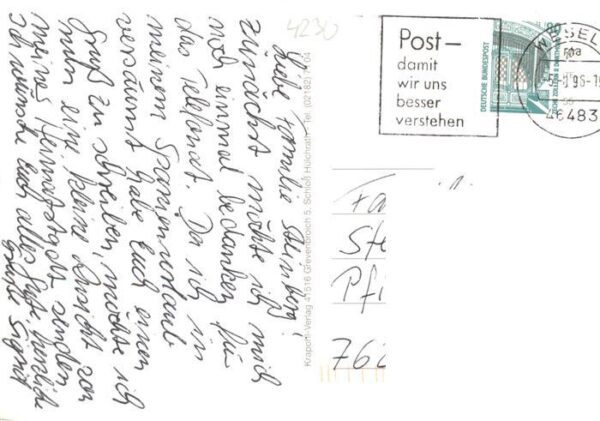 Liebe Familie
zunächst möchte ich mich
noch einmal bedanken für
das Telefonat. Da ich in
meinem Spanienurlaub
versäumt habe Euch einen
Gruß zu schreiben, möchte ich
eine kleine Ansicht von
meines senden
Ich wünsche Euch alles Gute herzliche
Grüße Sigrid
Krapohl-Verlag 41516 Grevenbroich 5, Schloß Hülchrath · Tel. (02182)
4230
Post –
damit
wir uns
besser
verstehen
DEUTSCHE BUNDESPOST
WESEL
46483
Fa
Ste
Pfi
762